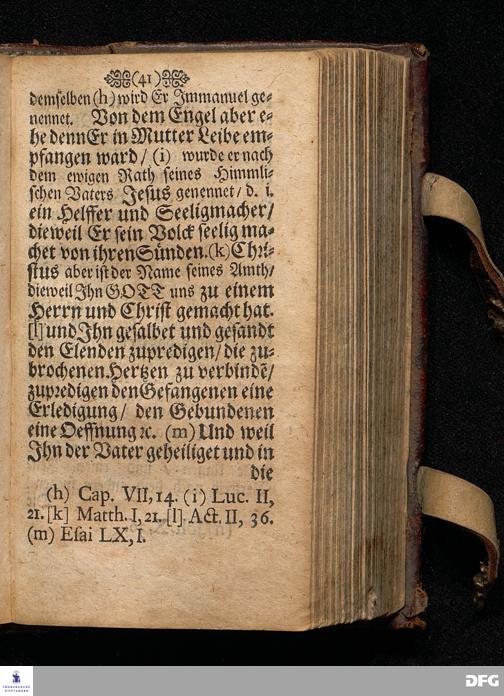 (41)
demselben (h) wird Er Jmmanuel ge-
nennet. Von dem Engel aber e-
he denn Er in Mutter Leibe em-
pfangen ward / (i) wurde er nach
dem ewigen Rath seines Himmli-
schen Vaters Jesus genennet / d. i.
ein Helffer und Seeligmacher /
dieweil Er sein Volck seelig ma-
chet von ihren Sünden. (k) Chri-
stus aber ist der Name seines Amth /
dieweil Jhn GOTT uns zu einem
Herrn und Christ gemacht hat.
[l] und Jhn gesalbet und gesandt
den Elenden zupredigen / die zu-
brochenen Hertzen zu verbindē /
zupredigen den Gefangenen eine
Erledigung / den Gebundenen
eine Oeffnung ꝛc. (m) Und weil
Jhn der Vater geheiliget und in
die
(h) Cap. VII, 14. (i) Luc. II,
21. [k] Matth. I, 21. [l] Act. II, 36.
(m) Esai LX, I.
FRANCKESCHE
STIFTUNGEN
DFG